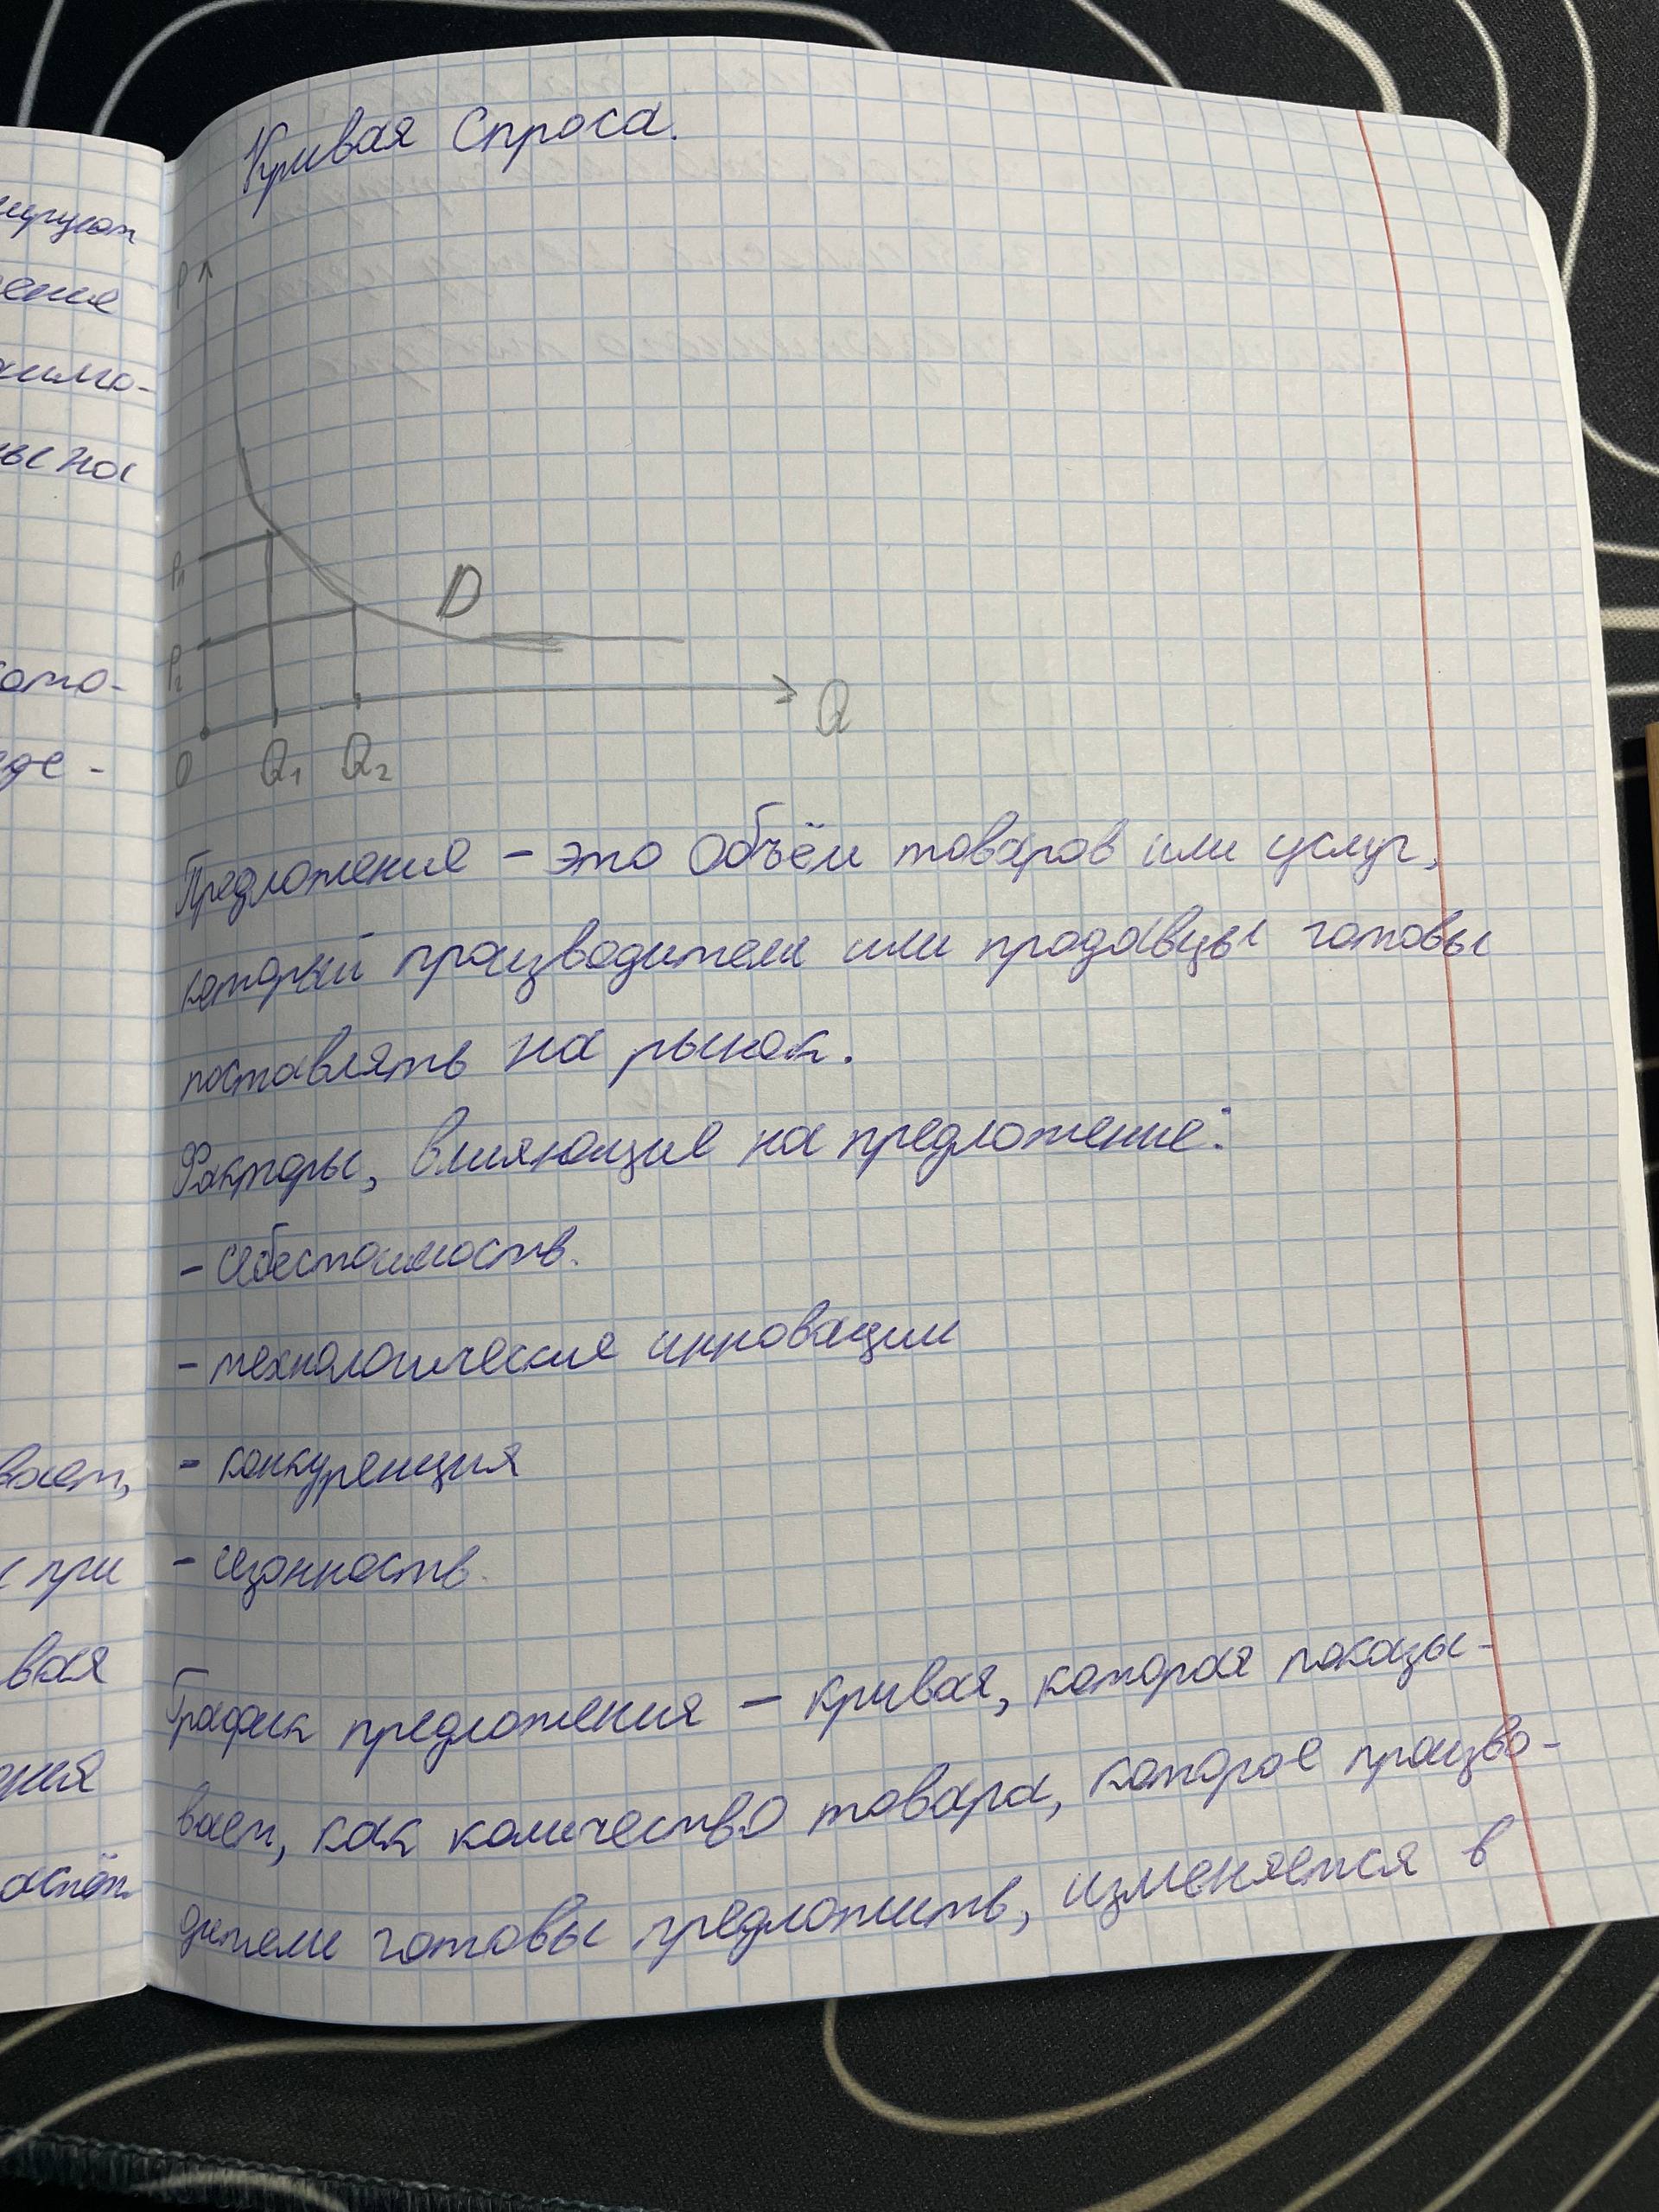 Кривая Спроса.
P
P1
D
P2
Q
0 Q1 Q2
Предложение - это Объём товаров или услуг,
который производители или продавцы готовы
поставлять на рынок.
Факторы, влияющие на предложение:
- себестоимость.
- технологические инновации
- конкуренция
- сезонность.
График предложения - кривая, которая показы-
вает, как количество товара, которое произво-
дители готовы предложить, изменяется в
при
вая